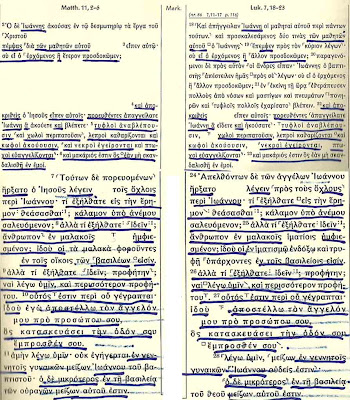 Matth. 11, 2-6
Mark.
Luk. 7, 18-23
7,11-17 p. 116)
2Ὁ δὲ Ἰωάννης ἀκούσας ἐν τῷ δεσμωτηρίῳ τὰ ἔργα τοῦ
Χριστοῦ
πέμψας διὰ τῶν μαθητῶν αὐτοῦ 3εἶπεν αὐτῷ·
σὺ εἶ ὁ ἐρχόμενος ἢ ἕτερον προσδοκῶμεν;
4καὶ ἀπο-
κριθεὶς ὁ Ἰησοῦς εἶπεν αὐτοῖς· πορευθέντες ἀπαγγείλατε
Ἰωάννῃ ἃ ἀκούετε καὶ βλέπετε· 5τυφλοὶ ἀναβλέπου-
σιν καὶ χωλοὶ περιπατοῦσιν, λεπροὶ καθαρίζονται καὶ
κωφοὶ ἀκούουσιν, καὶ νεκροὶ ἐγείρονται καὶ πτω-
χοὶ εὐαγγελίζονται· 6καὶ μακάριός ἐστιν ὃς ἐὰν μὴ σκαν-
δαλισθῇ ἐν ἐμοί.
7Τούτων δὲ πορευομένων
ἤρξατο ὁ Ἰησοῦς λέγειν τοῖς ὄχλοις
περὶ Ἰωάννου· τί ἐξήλθατε εἰς τὴν ἔρη-
μον θεάσασθαι; κάλαμον ὑπὸ ἀνέμου
σαλευόμενον; 8ἀλλὰ τί ἐξήλθατε ἰδεῖν;
ἄνθρωπον ἐν μαλακοῖς ἠμφιε-
σμένον; ἰδοὺ οἱ τὰ μαλακὰ φοροῦντες
ἐν τοῖς οἴκοις τῶν βασιλέων εἰσίν.
9ἀλλὰ τί ἐξήλθατε ἰδεῖν; προφήτην;
ναὶ λέγω ὑμῖν, καὶ περισσότερον προφή-
του. 10οὗτός ἐστιν περὶ οὗ γέγραπται·
ἰδοὺ ἐγὼ ἀποστέλλω τὸν ἄγγελόν
μου πρὸ προσώπου σου,
ὃς κατασκευάσει τὴν ὁδόν σου
ἔμπροσθέν σου.
11ἀμὴν λέγω ὑμῖν· οὐκ ἐγήγερται ἐν γεν-
νητοῖς γυναικῶν μείζων Ἰωάννου τοῦ βα-
πτιστοῦ· ὁ δὲ μικρότερος ἐν τῇ βασιλείᾳ
τῶν οὐρανῶν μείζων αὐτοῦ ἐστιν.
18Καὶ ἀπήγγειλαν Ἰωάννῃ οἱ μαθηταὶ αὐτοῦ περὶ πάντων
τούτων. καὶ προσκαλεσάμενος δύο τινὰς τῶν μαθητῶν
αὐτοῦ ὁ Ἰωάννης 19ἔπεμψεν πρὸς τὸν κύριον λέγων·
σὺ εἶ ὁ ἐρχόμενος ἢ ἄλλον προσδοκῶμεν; 20παραγενό-
μενοι δὲ πρὸς αὐτὸν οἱ ἄνδρες εἶπαν· Ἰωάννης ὁ βαπτι-
στὴς ἀπέστειλεν ἡμᾶς πρὸς σὲ λέγων· σὺ εἶ ὁ ἐρχόμενος
ἢ ἄλλον προσδοκῶμεν; 21ἐν ἐκείνῃ τῇ ὥρᾳ ἐθεράπευσεν
πολλοὺς ἀπὸ νόσων καὶ μαστίγων καὶ πνευμάτων πονη-
ρῶν καὶ τυφλοῖς πολλοῖς ἐχαρίσατο βλέπειν. 22καὶ ἀπο-
κριθεὶς εἶπεν αὐτοῖς· πορευθέντες ἀπαγγείλατε
Ἰωάννῃ ἃ εἴδετε καὶ ἠκούσατε· τυφλοὶ ἀναβλέπου-
σιν, χωλοὶ περιπατοῦσιν, λεπροὶ καθαρίζονται καὶ
κωφοὶ ἀκούουσιν, νεκροὶ ἐγείρονται, πτω-
χοὶ εὐαγγελίζονται· 23καὶ μακάριός ἐστιν ὃς ἐὰν μὴ σκαν-
δαλισθῇ ἐν ἐμοί.
24Ἀπελθόντων δὲ τῶν ἀγγέλων Ἰωάννου
ἤρξατο λέγειν πρὸς τοὺς ὄχλους
περὶ Ἰωάννου· τί ἐξήλθατε εἰς τὴν ἔρη-
μον θεάσασθαι; κάλαμον ὑπὸ ἀνέμου
σαλευόμενον; 25ἀλλὰ τί ἐξήλθατε ἰδεῖν;
ἄνθρωπον ἐν μαλακοῖς ἱματίοις ἠμφιε-
σμένον; ἰδοὺ οἱ ἐν ἱματισμῷ ἐνδόξῳ καὶ τρυ-
φῇ ὑπάρχοντες ἐν τοῖς βασιλείοις εἰσίν.
26ἀλλὰ τί ἐξήλθατε ἰδεῖν; προφήτην;
ναὶ λέγω ὑμῖν, καὶ περισσότερον προφή-
του. 27οὗτός ἐστιν περὶ οὗ γέγραπται·
ἰδοὺ ἀποστέλλω τὸν ἄγγελόν
μου πρὸ προσώπου σου,
ὃς κατασκευάσει τὴν ὁδόν σου
ἔμπροσθέν σου.
28λέγω ὑμῖν, μείζων ἐν γεννητοῖς
γυναικῶν Ἰωάννου οὐδείς ἐστιν·
ὁ δὲ μικρότερος ἐν τῇ βασιλείᾳ
τοῦ θεοῦ μείζων αὐτοῦ ἐστιν.